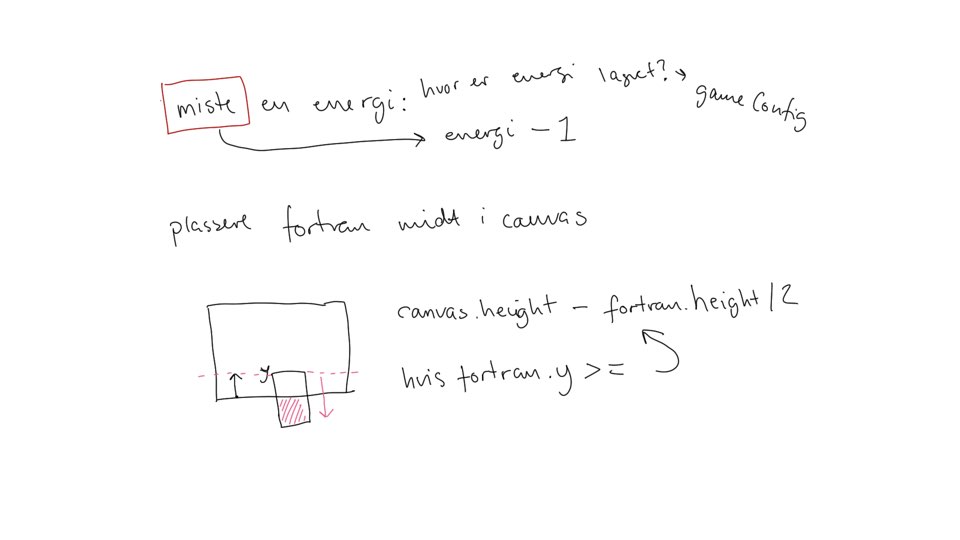 miste en energi: hvor er energi lagret? → gameConfig
energi - 1
plassere fortran midt i canvas
canvas.height - fortran.height/2
y
hvis fortran.y >=